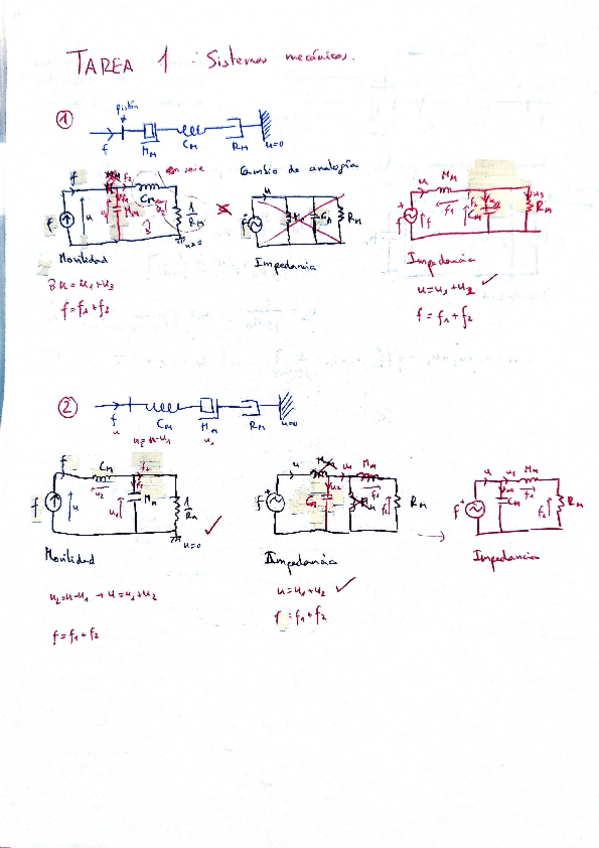 TAREA 1 : Sistemas mecánicos.
① pistón
f M_M C_M R_M u=0
f f_2 en serie
f u M_M C_M 1/R_M u=0
Movilidad
u = u_1+u_3
f = f_1+f_2
Cambio de analogía
u R_M
Impedancia
u M_M u_3
f f_1 f_2 C_M R_M
Impedancia
u = u_1+u_2 ✓
f = f_1+f_2
②
f C_M M_M R_M u=0
u u_2=u-u_1 u_1
f C_M f_2
f u u_2 f_1 u_1 M_M 1/R_M u=0 ✓
Movilidad
u_2=u-u_1 → u=u_1+u_2
f = f_1+f_2
u u_1 M_M
f C_M u_2 f_1 f_2 R_M
Impedancia
u = u_1+u_2 ✓
f = f_1+f_2
→
u M_M
f C_M f_1 f_2 R_M
Impedancia